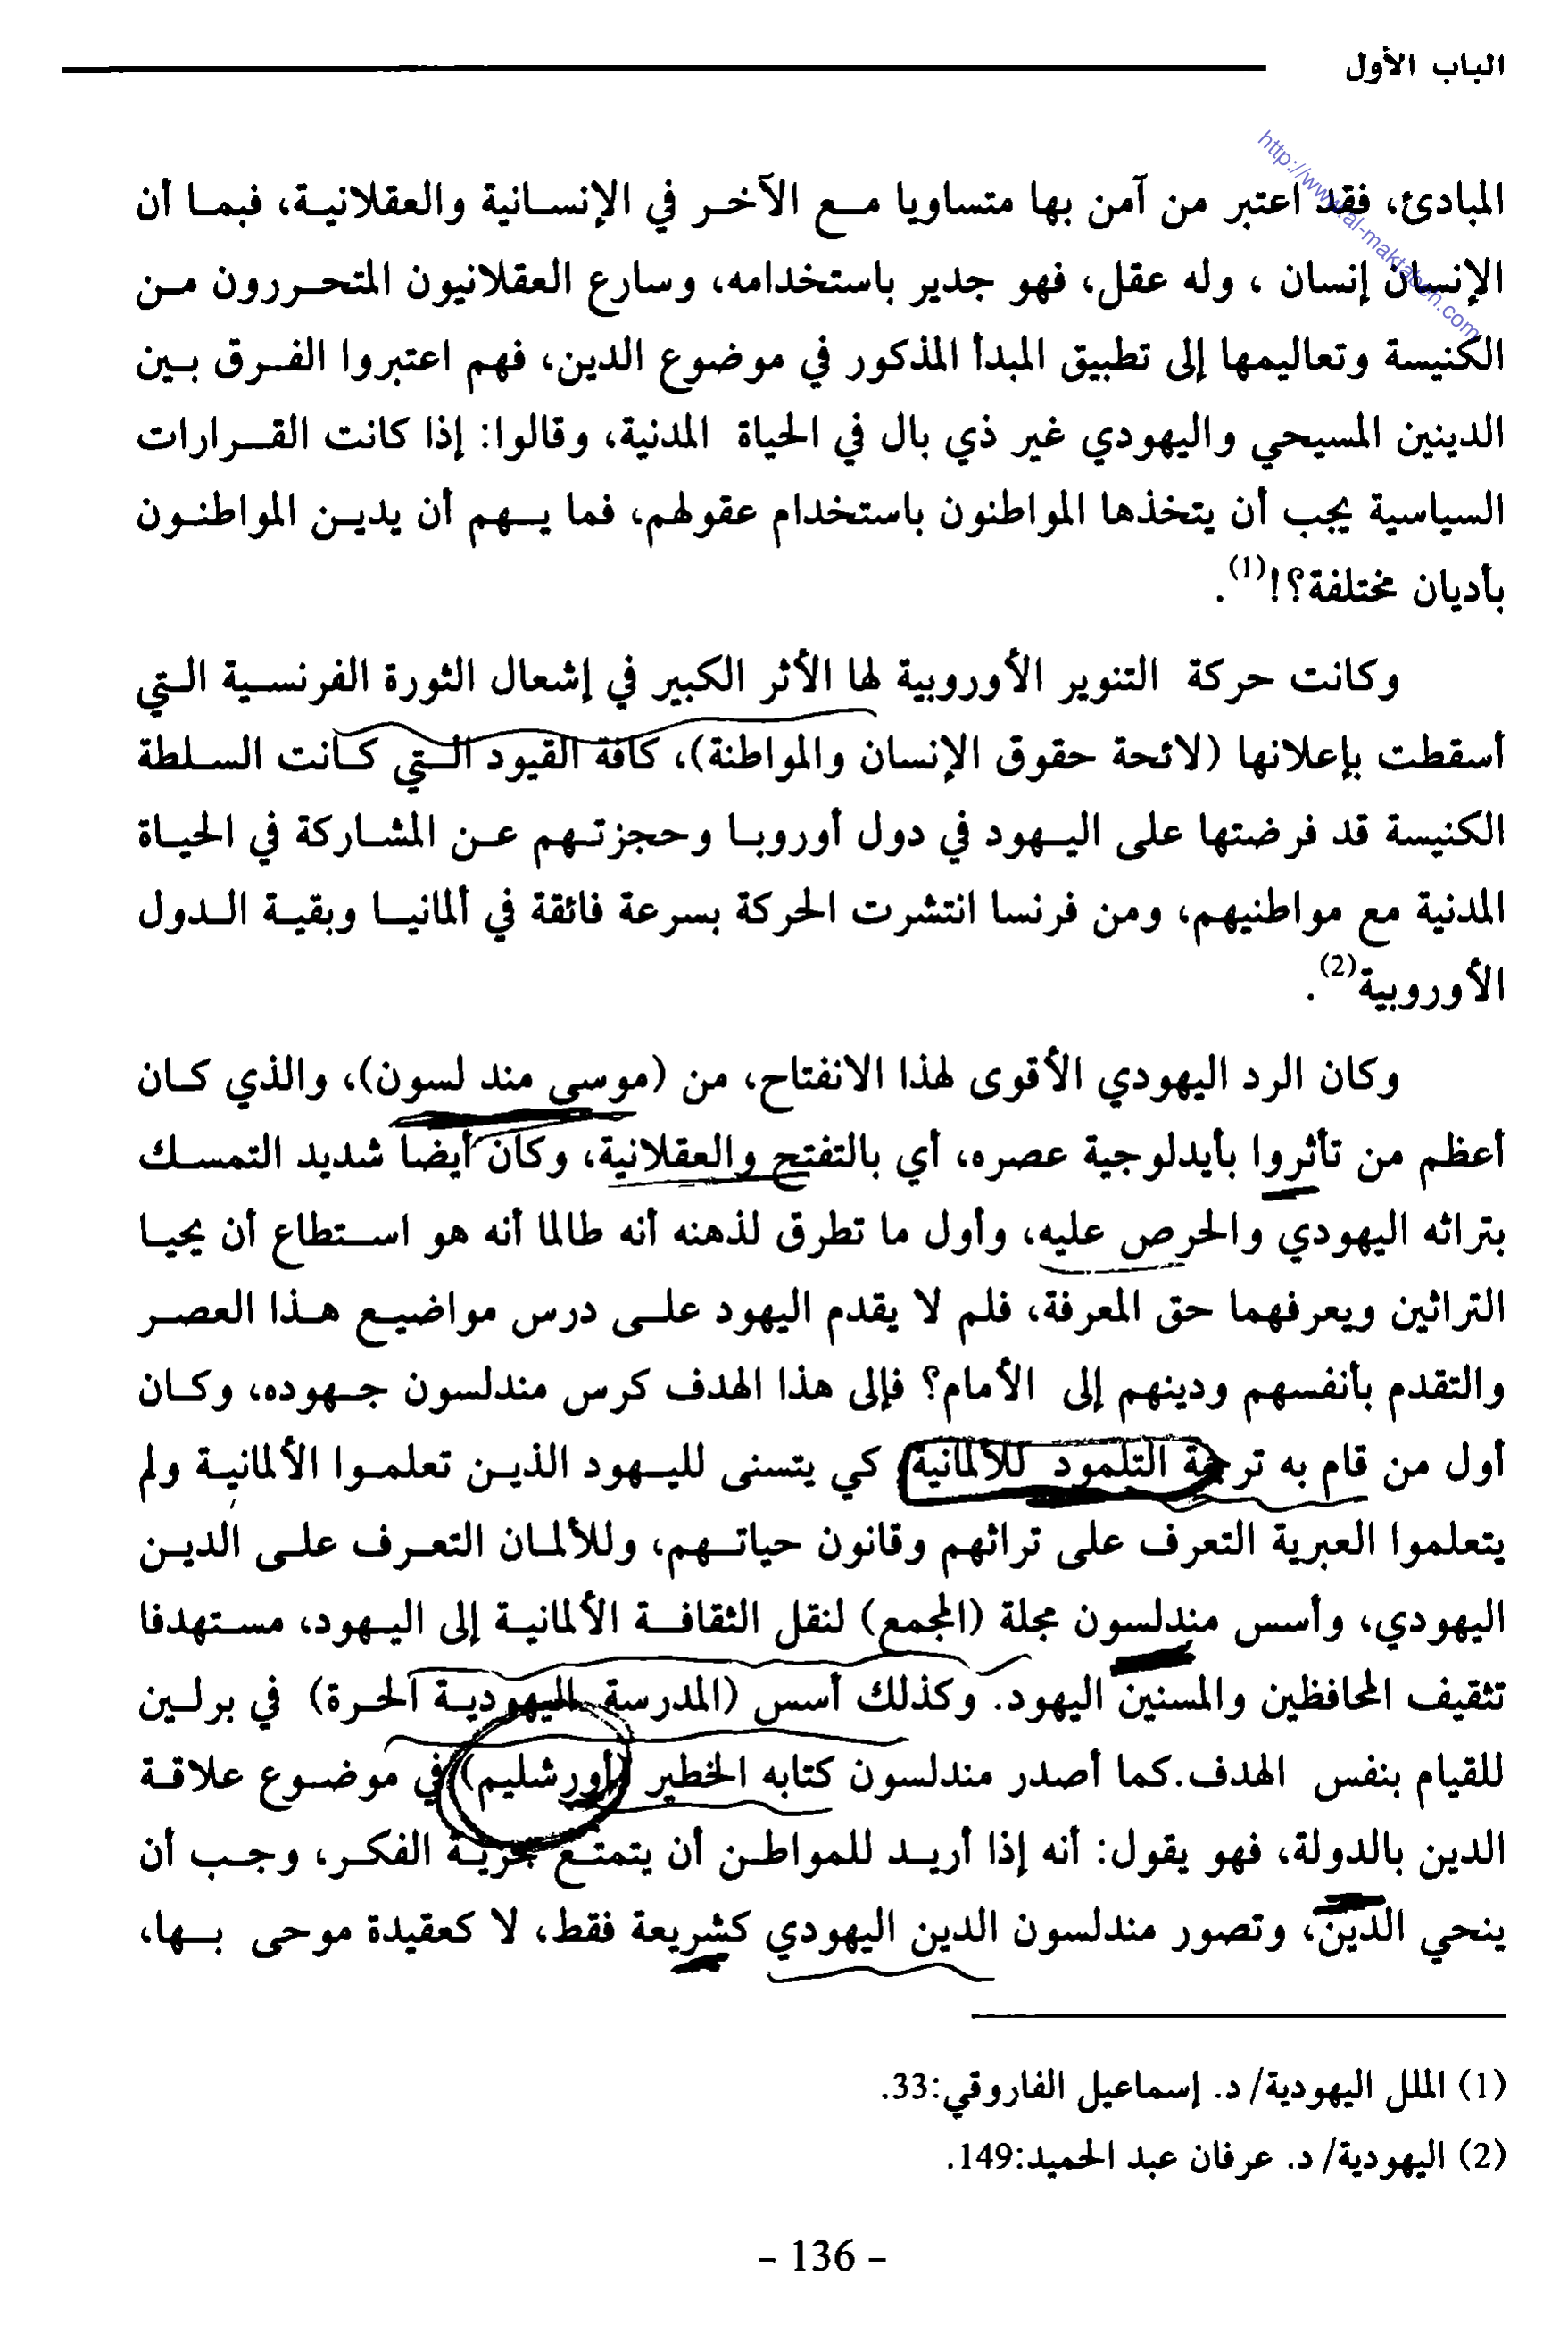 الباب الأول
http://www.al-maktabeh.com
المبادئ، فقد اعتبر من آمن بها متساويا مع الآخر في الإنسانية والعقلانية، فبما أن
الإنسان إنسان ، وله عقل، فهو جدير باستخدامه، وسارع العقلانيون المتحررون من
الكنيسة وتعاليمها إلى تطبيق المبدأ المذكور في موضوع الدين، فهم اعتبروا الفرق بين
الدينين المسيحي واليهودي غير ذي بال في الحياة المدنية، وقالوا: إذا كانت القرارات
السياسية يجب أن يتخذها المواطنون باستخدام عقولهم، فما يهم أن يدين المواطنون
بأديان مختلفة؟!(1).
وكانت حركة التنوير الأوروبية لها الأثر الكبير في إشعال الثورة الفرنسية التي
أسقطت بإعلانها (لائحة حقوق الإنسان والمواطنة)، كافة القيود التي كانت السلطة
الكنيسة قد فرضتها على اليهود في دول أوروبا وحجزتهم عن المشاركة في الحياة
المدنية مع مواطنيهم، ومن فرنسا انتشرت الحركة بسرعة فائقة في ألمانيا وبقية الدول
الأوروبية(2).
وكان الرد اليهودي الأقوى لهذا الانفتاح، من (موسى مند لسون)، والذي كان
أعظم من تأثروا بأيدلوجية عصره، أي بالتفتح والعقلانية، وكان أيضا شديد التمسك
بتراثه اليهودي والحرص عليه، وأول ما تطرق لذهنه أنه طالما أنه هو استطاع أن يحيا
التراثين ويعرفهما حق المعرفة، فلم لا يقدم اليهود على درس مواضيع هذا العصر
والتقدم بأنفسهم ودينهم إلى الأمام؟ فإلى هذا الهدف كرس مندلسون جهوده، وكان
أول من قام به ترجمة التلمود للألمانية، كي يتسنى لليهود الذين تعلموا الألمانية ولم
يتعلموا العبرية التعرف على تراثهم وقانون حياتهم، وللألمان التعرف على الدين
اليهودي، وأسس مندلسون مجلة (المجمع) لنقل الثقافة الألمانية إلى اليهود، مستهدفا
تثقيف المحافظين والمسنين اليهود. وكذلك أسس (المدرسة اليهودية الحرة) في برلين
للقيام بنفس الهدف.كما أصدر مندلسون كتابه الخطير (أورشليم) في موضوع علاقة
الدين بالدولة، فهو يقول: أنه إذا أريد للمواطن أن يتمتع بحرية الفكر، وجب أن
ينحي الدين، وتصور مندلسون الدين اليهودي كشريعة فقط، لا كعقيدة موحى بها،
(1) الملل اليهودية/ د. إسماعيل الفاروقي:33.
(2) اليهودية/ د. عرفان عبد الحميد:149.
- 136 -